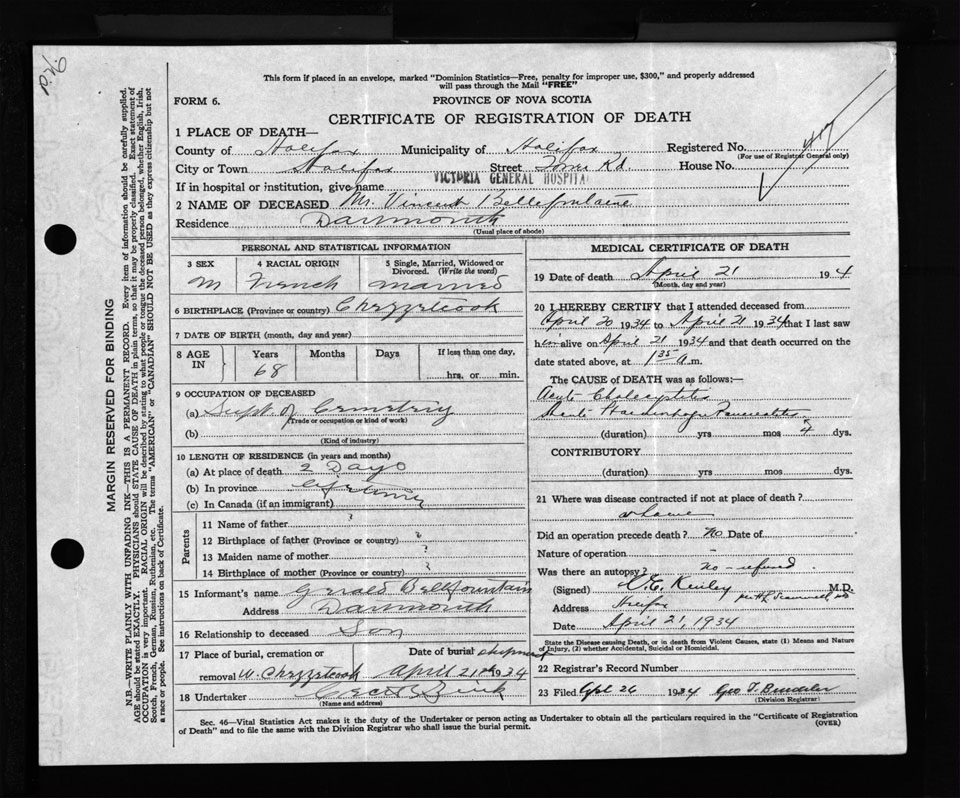 This form if placed in an envelope, marked "Dominion Statistics—Free, penalty for improper use, $300," and properly addressed
will pass through the Mail "FREE"
FORM 6.
PROVINCE OF NOVA SCOTIA
CERTIFICATE OF REGISTRATION OF DEATH
1 PLACE OF DEATH—
County of Halifax Municipality of Halifax Registered No.
(For use of Registrar General only)
City or Town Halifax Street Tower Rd House No.
If in hospital or institution, give name VICTORIA GENERAL HOSPITAL
2 NAME OF DECEASED Mr. Vincent Bellefontaine
Residence Dartmouth
(Usual place of abode)
PERSONAL AND STATISTICAL INFORMATION
3 SEX 4 RACIAL ORIGIN 5 Single, Married, Widowed or Divorced. (Write the word)
M French Married
6 BIRTHPLACE (Province or country) Chezzetcook
7 DATE OF BIRTH (month, day and year)
8 AGE IN Years Months Days If less than one day,
68
hrs. or min.
9 OCCUPATION OF DECEASED
(a) Supt of Cemetery
(Trade or occupation or kind of work)
(b)
(Kind of industry)
10 LENGTH OF RESIDENCE (in years and months)
(a) At place of death 2 Days
(b) In province Lifetime
(c) In Canada (if an immigrant)
Parents
11 Name of father ?
12 Birthplace of father (Province or country) ?
13 Maiden name of mother ?
14 Birthplace of mother (Province or country) ?
15 Informant's name Gerald Bellfountain
Address Dartmouth
16 Relationship to deceased Son
17 Place of burial, cremation or Date of burial shipment
removal W. Chezzetcook April 21st 1934
18 Undertaker
(Name and address)
MEDICAL CERTIFICATE OF DEATH
19 Date of death April 21 19 4
(Month, day and year)
20 I HEREBY CERTIFY that I attended deceased from
April 20 1934 to April 21 1934 that I last saw
him alive on April 21 1934 and that death occurred on the
date stated above, at 1 35 a.m.
The CAUSE of DEATH was as follows:—
Acute Cholecystitis
Acute Haemorrhagic Pancreatitis
(duration) yrs mos dys.
CONTRIBUTORY
(duration) yrs mos dys.
21 Where was disease contracted if not at place of death?
at home
Did an operation precede death? no Date of
Nature of operation –
Was there an autopsy? no – refused
(Signed) M.D.
Address Halifax
Date April 21, 1934
State the Disease causing Death, or in death from Violent Causes, state (1) Means and Nature
of Injury, (2) whether Accidental, Suicidal or Homicidal.
22 Registrar's Record Number
23 Filed Apl 26 1934 Geo
(Division Registrar)
Sec. 46—Vital Statistics Act makes it the duty of the Undertaker or person acting as Undertaker to obtain all the particulars required in the "Certificate of Registration
of Death" and to file the same with the Division Registrar who shall issue the burial permit.
(OVER)
MARGIN RESERVED FOR BINDING
N.B.—WRITE PLAINLY WITH UNFADING INK—THIS IS A PERMANENT RECORD. Every item of information should be carefully supplied.
AGE should be stated EXACTLY. PHYSICIANS should STATE CAUSE OF DEATH in plain terms, so that it may be properly classified. Exact statement of
OCCUPATION is very important. RACIAL ORIGIN will be described by stating to what people or tongue the deceased person belonged, whether English, Irish,
Scotch, French, German, Russian, Ruthenian, etc. The terms "AMERICAN" or "CANADIAN" SHOULD NOT BE USED as they express citizenship but not
a race or people. See instructions on back of Certificate.